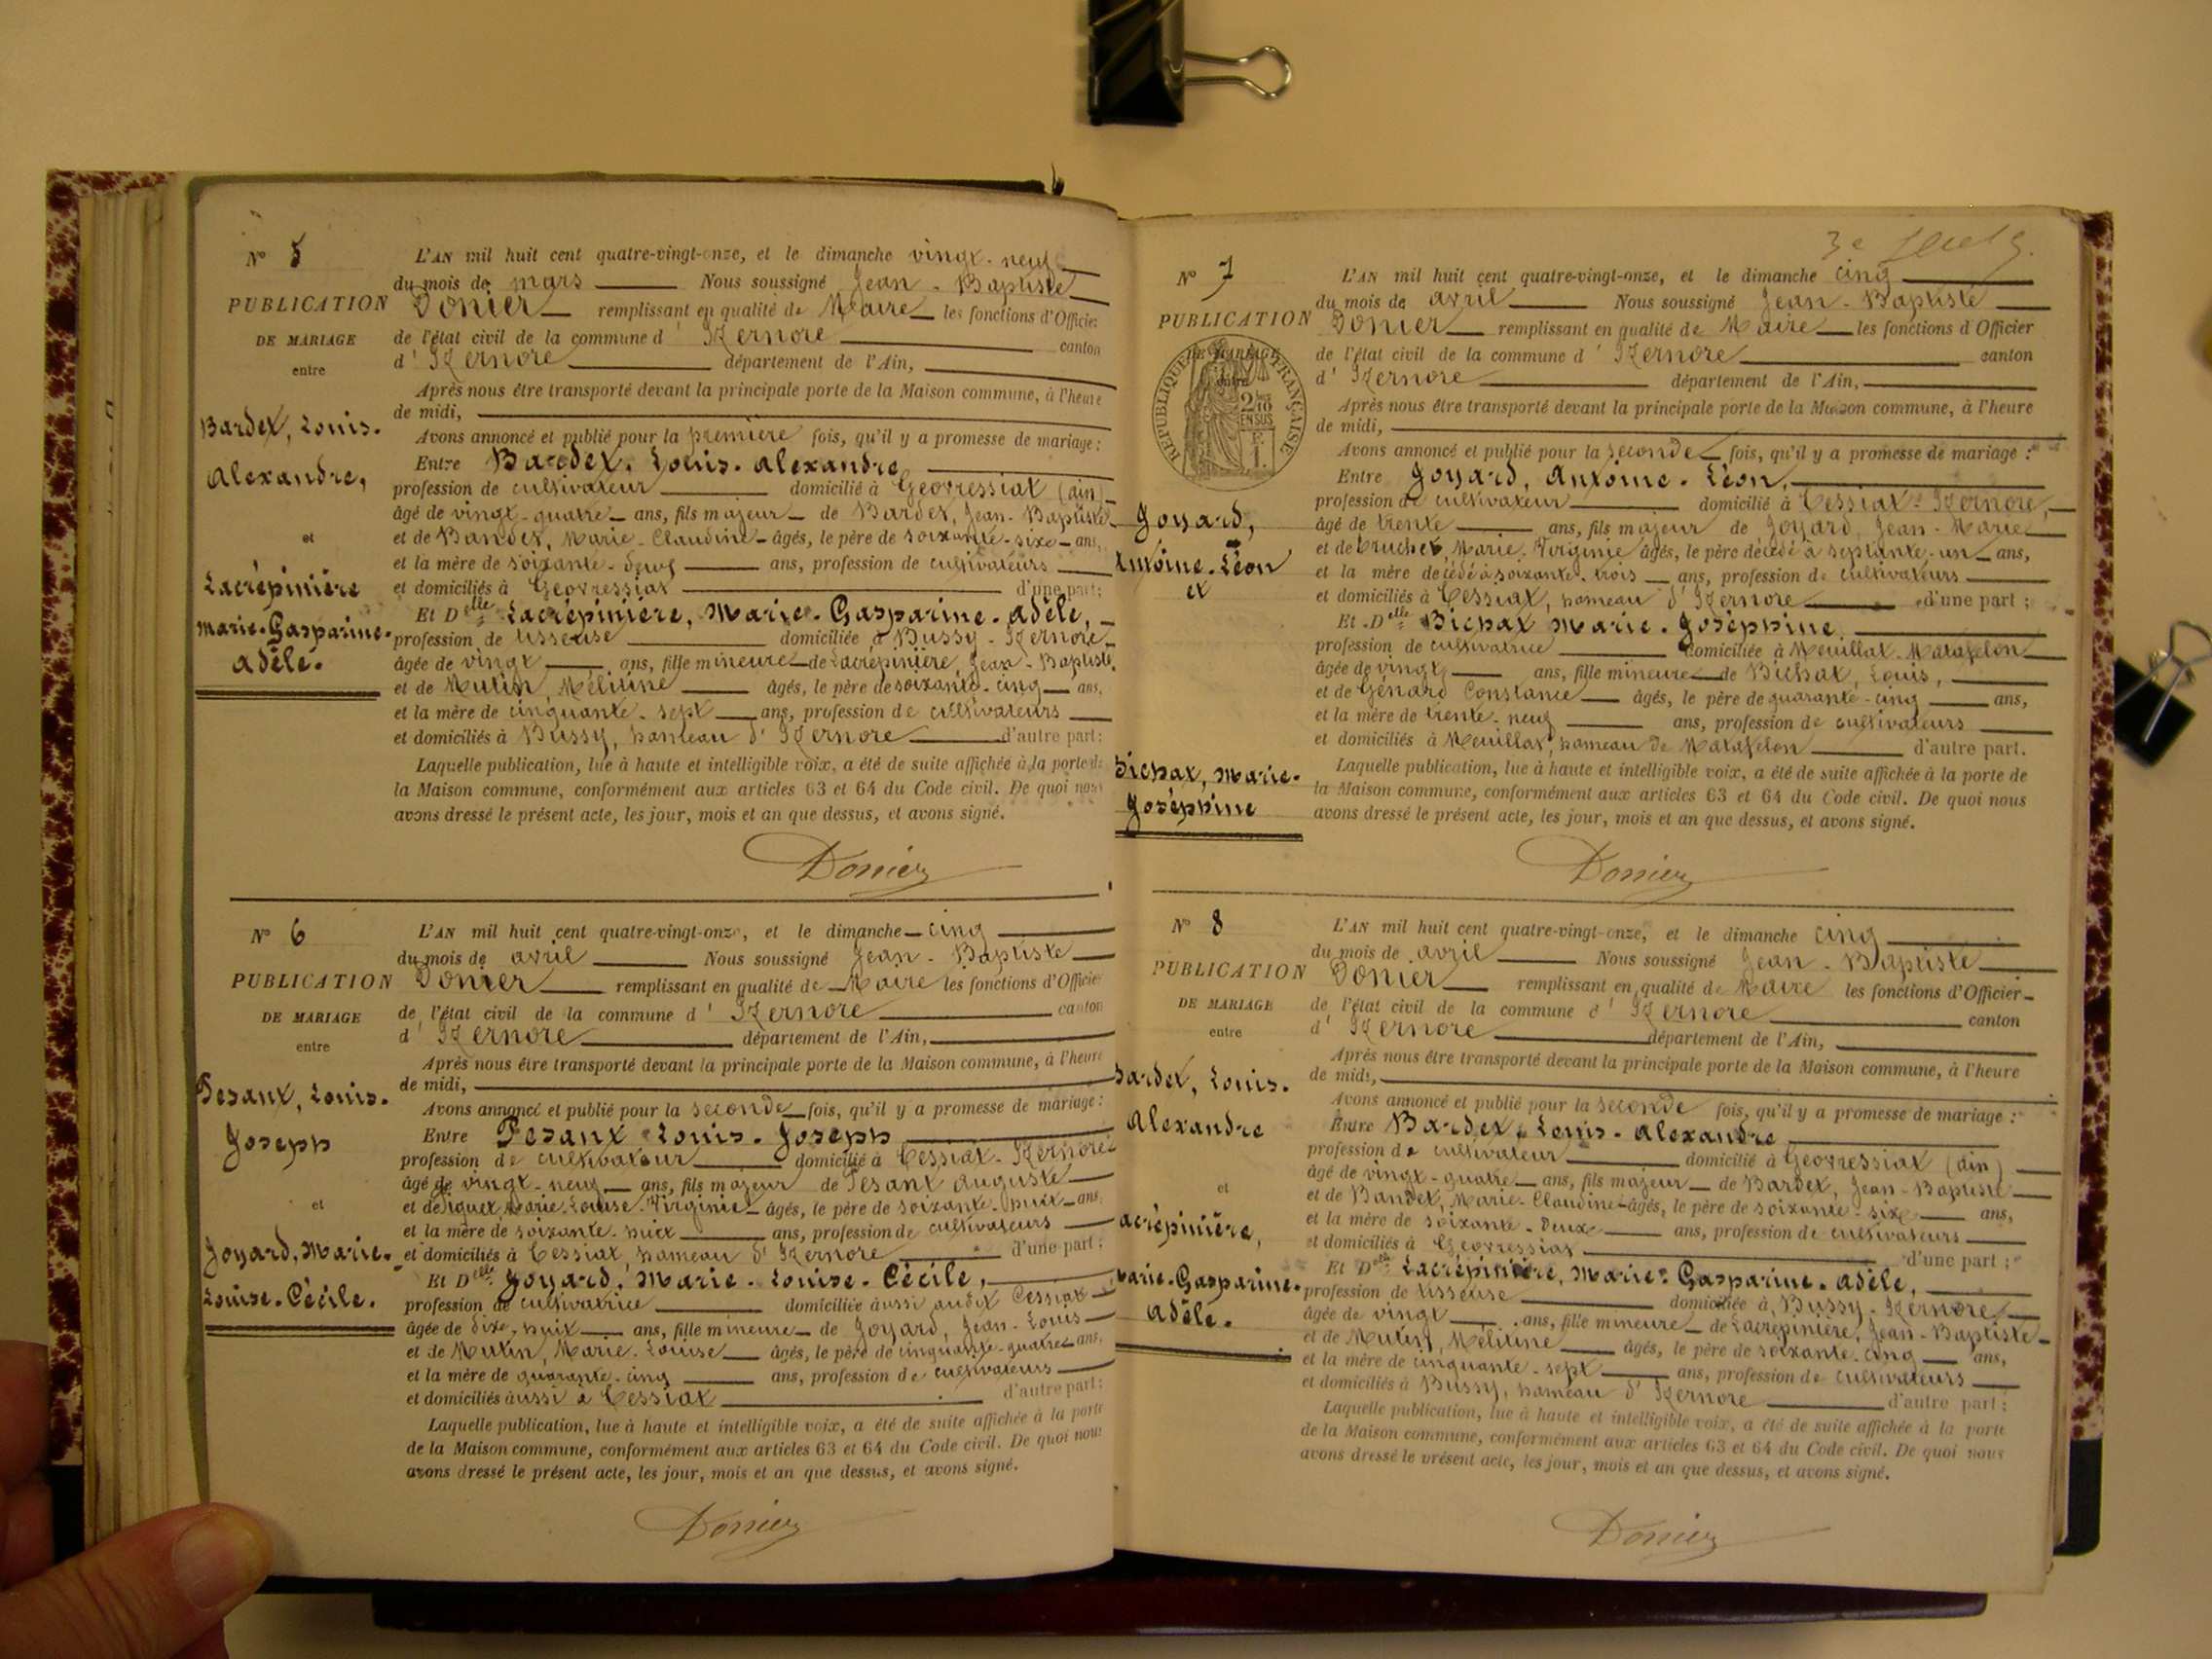 N° 5
PUBLICATION
DE MARIAGE
entre
Bardet, Louis-
Alexandre,
et
Lacrépinière
Marie-Gasparine-
Adèle.
L'AN mil huit cent quatre-vingt-onze, et le dimanche vingt-neuf
du mois de mars Nous soussigné Jean-Baptiste
Donier remplissant en qualité de Maire les fonctions d'Officier
de l'état civil de la commune d'Izernore canton
d'Izernore département de l'Ain,
Après nous être transporté devant la principale porte de la Maison commune, à l'heure
de midi,
Avons annoncé et publié pour la première fois, qu'il y a promesse de mariage :
Entre Bardet, Louis-Alexandre
profession de cultivateur domicilié à Géovressiat (ain)
âgé de vingt-quatre ans, fils majeur de Bardet, Jean-Baptiste
et de Bandet, Marie-Claudine âgés, le père de soixante-sixe ans,
et la mère de soixante-deux ans, profession de cultivateurs
et domiciliés à Géovressiat d'une part;
Et Delle Lacrépinière, Marie-Gasparine-Adèle,
profession de tisseuse domiciliée à Bussy-Izernore
âgée de vingt ans, fille mineure de Lacrépinière, Jean-Baptiste
et de Mutin, Mélitine âgés, le père de soixante-cinq ans,
et la mère de cinquante-sept ans, profession de cultivateurs
et domiciliés à Bussy, hameau d'Izernore d'autre part:
Laquelle publication, lue à haute et intelligible voix, a été de suite affichée à la porte de
la Maison commune, conformément aux articles 63 et 64 du Code civil. De quoi nous
avons dressé le présent acte, les jour, mois et an que dessus, et avons signé.
Donier
N° 6
PUBLICATION
DE MARIAGE
entre
Pesant, Louis-
Joseph
et
Joyard, Marie-
Louise-Cécile.
L'AN mil huit cent quatre-vingt-onze, et le dimanche cinq
du mois de avril Nous soussigné Jean-Baptiste
Donier remplissant en qualité de Maire les fonctions d'Officier
de l'état civil de la commune d'Izernore canton
d'Izernore département de l'Ain,
Après nous être transporté devant la principale porte de la Maison commune, à l'heure
de midi,
Avons annoncé et publié pour la seconde fois, qu'il y a promesse de mariage :
Entre Pesant Louis-Joseph
profession de cultivateur domicilié à Cessiat-Izernore
âgé de vingt-neuf ans, fils majeur de Pesant Auguste
et de Marie-Louise-Virginie âgés, le père de soixante-huit ans,
et la mère de soixante-huit ans, profession de cultivateurs
et domiciliés à Cessiat, hameau d'Izernore d'une part;
Et Delle Joyard, Marie-Louise-Cécile,
profession de cultivatrice domiciliée aussi audit Cessiat
âgée de dixe-huit ans, fille mineure de Joyard, Jean-Louis
et de Mutin, Marie-Louise âgés, le père de cinquante-quatre ans,
et la mère de quarante-cinq ans, profession de cultivateurs
et domiciliés aussi à Cessiat d'autre part:
Laquelle publication, lue à haute et intelligible voix, a été de suite affichée à la porte
de la Maison commune, conformément aux articles 63 et 64 du Code civil. De quoi nous
avons dressé le présent acte, les jour, mois et an que dessus, et avons signé.
Donier
3e
N° 7
PUBLICATION
DE MARIAGE
entre
RÉPUBLIQUE FRANÇAISE
2/10
EN SUS
Joyard,
Antoine-Léon
et
Bichat, Marie-
Joséphine
L'AN mil huit cent quatre-vingt-onze, et le dimanche cinq
du mois de avril Nous soussigné Jean-Baptiste
Donier remplissant en qualité de Maire les fonctions d'Officier
de l'état civil de la commune d'Izernore canton
d'Izernore département de l'Ain,
Après nous être transporté devant la principale porte de la Maison commune, à l'heure
de midi,
Avons annoncé et publié pour la seconde fois, qu'il y a promesse de mariage :
Entre Joyard, Antoine-Léon,
profession de cultivateur domicilié à Cessiat-Izernore,
âgé de trente ans, fils majeur de Joyard, Jean-Marie
et de Cruchet, Marie-Virginie âgés, le père décédé à septante-un ans,
et la mère décédé à soixante-trois ans, profession de cultivateurs
et domiciliés à Cessiat, hameau d'Izernore d'une part ;
Et Delle Bichat Marie-Joséphine
profession de cultivatrice domiciliée à Meuillat-Matafelon
âgée de vingt ans, fille mineure de Bichat, Louis,
et de Génard Constance âgés, le père de quarante-cinq ans,
et la mère de trente-neuf ans, profession de cultivateurs
et domiciliés à Meuillat, hameau de Matafelon d'autre part.
Laquelle publication, lue à haute et intelligible voix, a été de suite affichée à la porte de
la Maison commune, conformément aux articles 63 et 64 du Code civil. De quoi nous
avons dressé le présent acte, les jour, mois et an que dessus, et avons signé.
Donier
N° 8
PUBLICATION
DE MARIAGE
entre
Bardet, Louis-
Alexandre
et
acrépinière,
Marie-Gasparine-
Adèle.
L'AN mil huit cent quatre-vingt-onze, et le dimanche cinq
du mois de avril Nous soussigné Jean-Baptiste
Donier remplissant en qualité de Maire les fonctions d'Officier
de l'état civil de la commune d'Izernore canton
d'Izernore département de l'Ain,
Après nous être transporté devant la principale porte de la Maison commune, à l'heure
de midi,
Avons annoncé et publié pour la seconde fois, qu'il y a promesse de mariage :
Entre Bardet, Louis-Alexandre
profession de cultivateur domicilié à Géovressiat (ain)
âgé de vingt-quatre ans, fils majeur de Bardet, Jean-Baptiste
et de Bandet, Marie-Claudine âgés, le père de soixante-sixe ans,
et la mère de soixante-deux ans, profession de cultivateurs
et domiciliés à Géovressiat d'une part ;
Et Delle Lacrépinière, Marie-Gasparine-Adèle,
profession de tisseuse domiciliée à Bussy-Izernore
âgée de vingt ans, fille mineure de Lacrépinière, Jean-Baptiste
et de Mutin, Mélitine âgés, le père de soixante-cinq ans,
et la mère de cinquante-sept ans, profession de cultivateurs
et domiciliés à Bussy, hameau d'Izernore d'autre part :
Laquelle publication, lue à haute et intelligible voix, a été de suite affichée à la porte
de la Maison commune, conformément aux articles 63 et 64 du Code civil. De quoi nous
avons dressé le présent acte, les jour, mois et an que dessus, et avons signé.
Donier